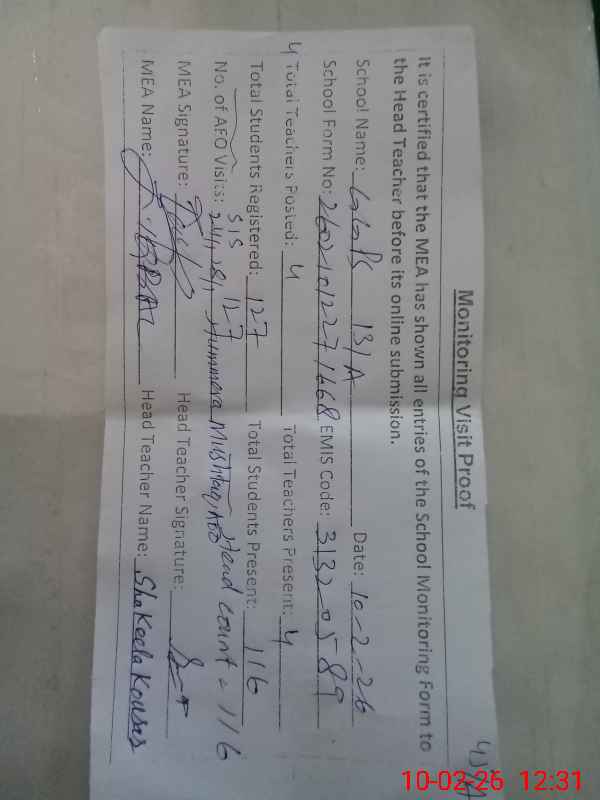 Monitoring Visit Proof
It is certified that the MEA has shown all entries of the School Monitoring Form to
the Head Teacher before its online submission.
School Name: GGPS 131A Date: 10-2-26
School Form No: 26021012271668 EMIS Code: 31320589
4 Total Teachers Posted: 4 Total Teachers Present: 4
Total Students Registered: 127 Total Students Present: 116
SIS 127
No. of AEO Visits: 24/1, 28/1, Hummera Mushtaq, AEO Head count = 116
MEA Signature: Head Teacher Signature:
MEA Name: IQBAL Head Teacher Name: Shakeela Kousar
10-02-26 12:31